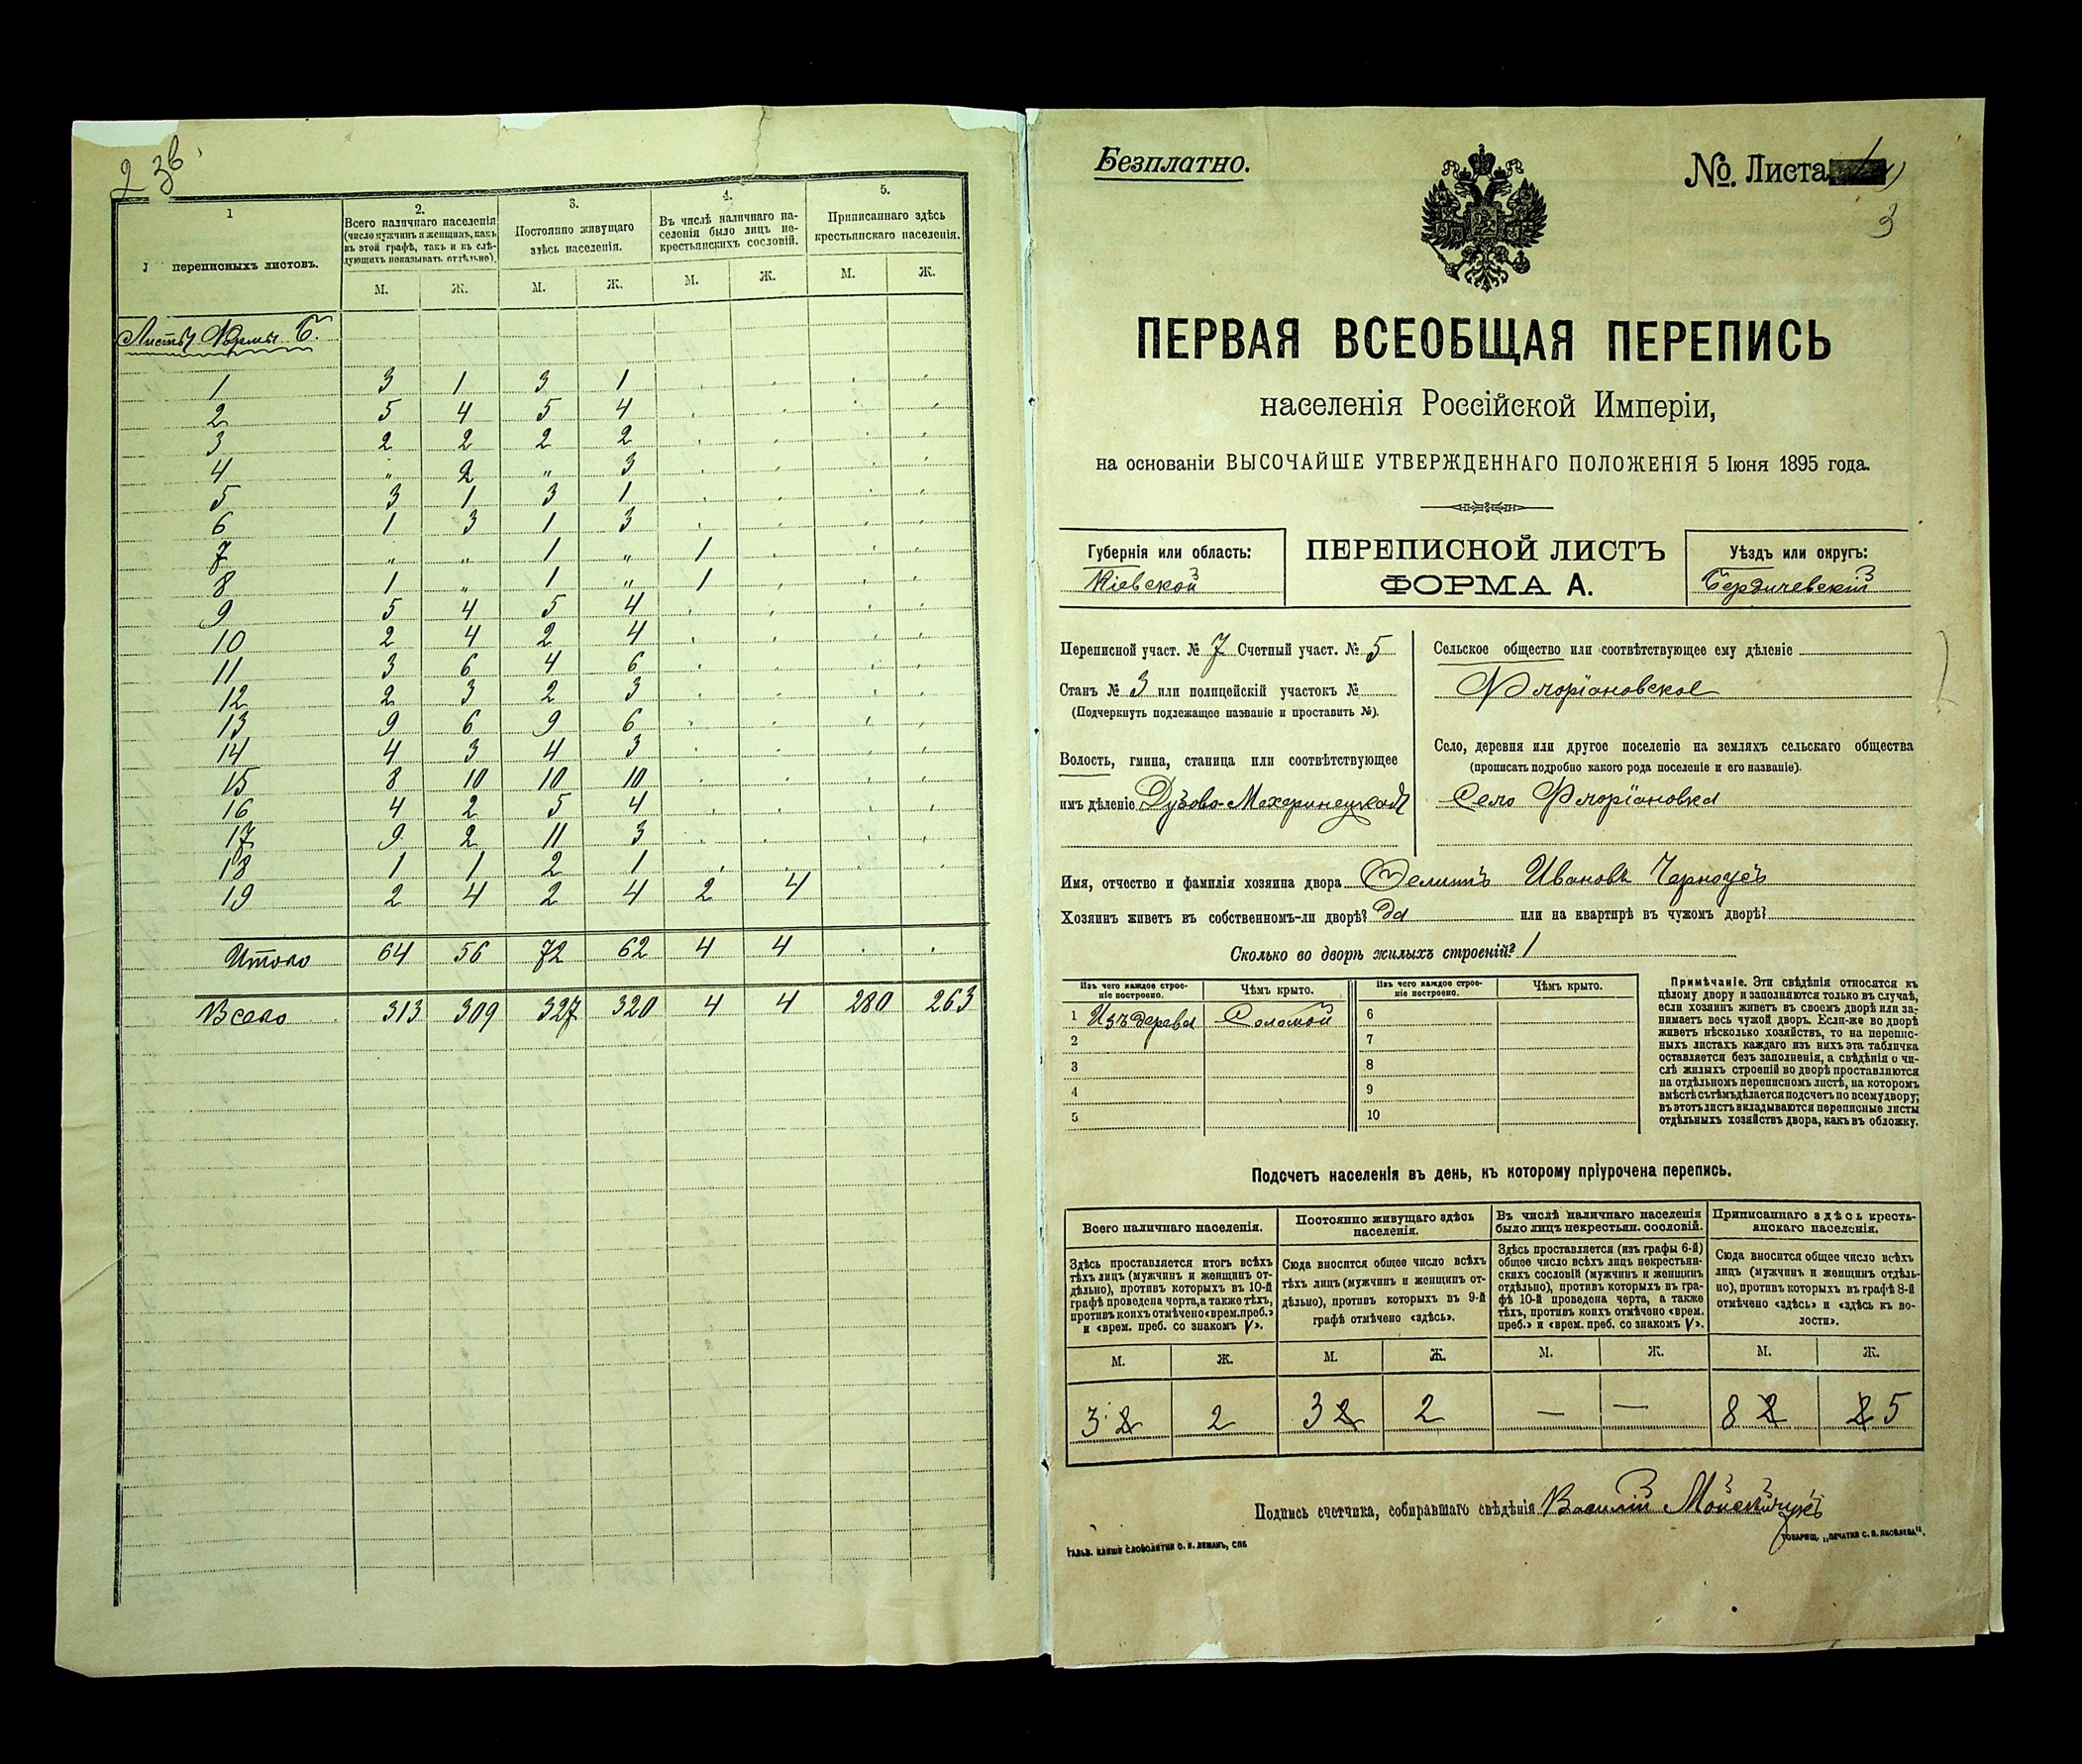 2 зв.
1
переписныхъ листовъ.
2.
Всего наличнаго населенія
(число мужчинъ и женщинъ, какъ
въ этой графѣ, такъ и въ слѣ-
дующихъ показывать отдѣльно).
3.
Постоянно живущаго
здѣсь населенія.
4.
Въ числѣ наличнаго на-
селенія было лицъ не-
крестьянскихъ сословій.
5.
Приписаннаго здѣсь
крестьянскаго населенія.
М. Ж. М. Ж. М. Ж. М. Ж.
Листы Формы Б.
1 3 1 3 1
2 5 4 5 4
3 2 2 2 2
4 „ 2 „ 3
5 3 1 3 1
6 1 3 1 3
7 „ „ 1 „ 1
8 1 „ 1 „ 1
9 5 4 5 4
10 2 4 2 4
11 3 6 4 6
12 2 3 2 3
13 9 6 9 6
14 4 3 4 3
15 8 10 10 10
16 4 2 5 4
17 9 2 11 3
18 1 1 2 1
19 2 4 2 4 2 4
Итого 64 56 72 62 4 4
Всего 313 309 327 320 4 4 280 263
Безплатно.
№. Листа
3
ПЕРВАЯ ВСЕОБЩАЯ ПЕРЕПИСЬ
населенія Россійской Имперіи,
на основаніи ВЫСОЧАЙШЕ УТВЕРЖДЕННАГО ПОЛОЖЕНІЯ 5 Іюня 1895 года.
Губернія или область:
Кіевской
ПЕРЕПИСНОЙ ЛИСТЪ
ФОРМА А.
Уѣздъ или округъ:
Бердичевскій
Переписной участ. № 7 Счетный участ. № 5
Станъ № 3 или полицейскій участокъ №
(Подчеркнуть подлежащее названіе и проставить №).
Волость, гмина, станица или соотвѣтствующее
имъ дѣленіе
Сельское общество или соотвѣтствующее ему дѣленіе
Флоріановское
Село, деревня или другое поселеніе на земляхъ сельскаго общества
(прописать подробно какого рода поселеніе и его названіе).
Село Флоріановка
Имя, отчество и фамилія хозяина двора Ивановъ Черноусъ
Хозяинъ живетъ въ собственномъ-ли дворѣ? Да или на квартирѣ въ чужомъ дворѣ?
Сколько во дворѣ жилыхъ строеній? 1
Изъ чего каждое строе-
ніе построено.
Чѣмъ крыто.
Изъ чего каждое строе-
ніе построено.
Чѣмъ крыто.
1 Изъ дерева Соломой 6
2 7
3 8
4 9
5 10
Примѣчаніе. Эти свѣдѣнія относятся къ
цѣлому двору и заполняются только въ случаѣ,
если хозяинъ живетъ въ своемъ дворѣ или за-
нимаетъ весь чужой дворъ. Если-же во дворѣ
живетъ нѣсколько хозяйствъ, то на перепис-
ныхъ листахъ каждаго изъ нихъ эта табличка
оставляется безъ заполненія, а свѣдѣнія о чи-
слѣ жилыхъ строеній во дворѣ проставляются
на отдѣльномъ переписномъ листѣ, на которомъ
вмѣстѣ съ тѣмъ дѣлается подсчетъ по всему двору;
въ этотъ листъ вкладываются переписные листы
отдѣльныхъ хозяйствъ двора, какъ въ обложку.
Подсчетъ населенія въ день, къ которому пріурочена перепись.
Всего наличнаго населенія.
Здѣсь проставляется итогъ всѣхъ
тѣхъ лицъ (мужчинъ и женщинъ от-
дѣльно), противъ которыхъ въ 10-й
графѣ проведена черта, а также тѣхъ,
противъ коихъ отмѣчено «врем. преб.»
и «врем. преб. со знакомъ V».
Постоянно живущаго здѣсь
населенія.
Сюда вносится общее число всѣхъ
тѣхъ лицъ (мужчинъ и женщинъ от-
дѣльно), противъ которыхъ въ 9-й
графѣ отмѣчено «здѣсь».
Въ числѣ наличнаго населенія
было лицъ некрестьян. сословій.
Здѣсь проставляется (изъ графы 6-й)
общее число всѣхъ лицъ некрестьян-
скихъ сословій (мужчинъ и женщинъ
отдѣльно), противъ которыхъ въ гра-
фѣ 10-й проведена черта, а также
тѣхъ, противъ коихъ отмѣчено «врем.
преб.» и «врем. преб. со знакомъ V».
Приписаннаго здѣсь кресть-
янскаго населенія.
Сюда вносится общее число всѣхъ
лицъ (мужчинъ и женщинъ отдѣль-
но), противъ которыхъ въ графѣ 8-й
отмѣчено «здѣсь» и «здѣсь къ во-
лости».
М. Ж. М. Ж. М. Ж. М. Ж.
3 2 2 3 2 2 — — 8 2 2 5
Подпись счетчика, собиравшаго свѣдѣнія Василій
ГАЛЬВ. КЛИШЕ СЛОВОЛИТНИ О. И. ЛЕМАНЪ, СПБ
ТОВАРИЩ. „ПЕЧАТНЯ С. П. ЯКОВЛЕВА“.